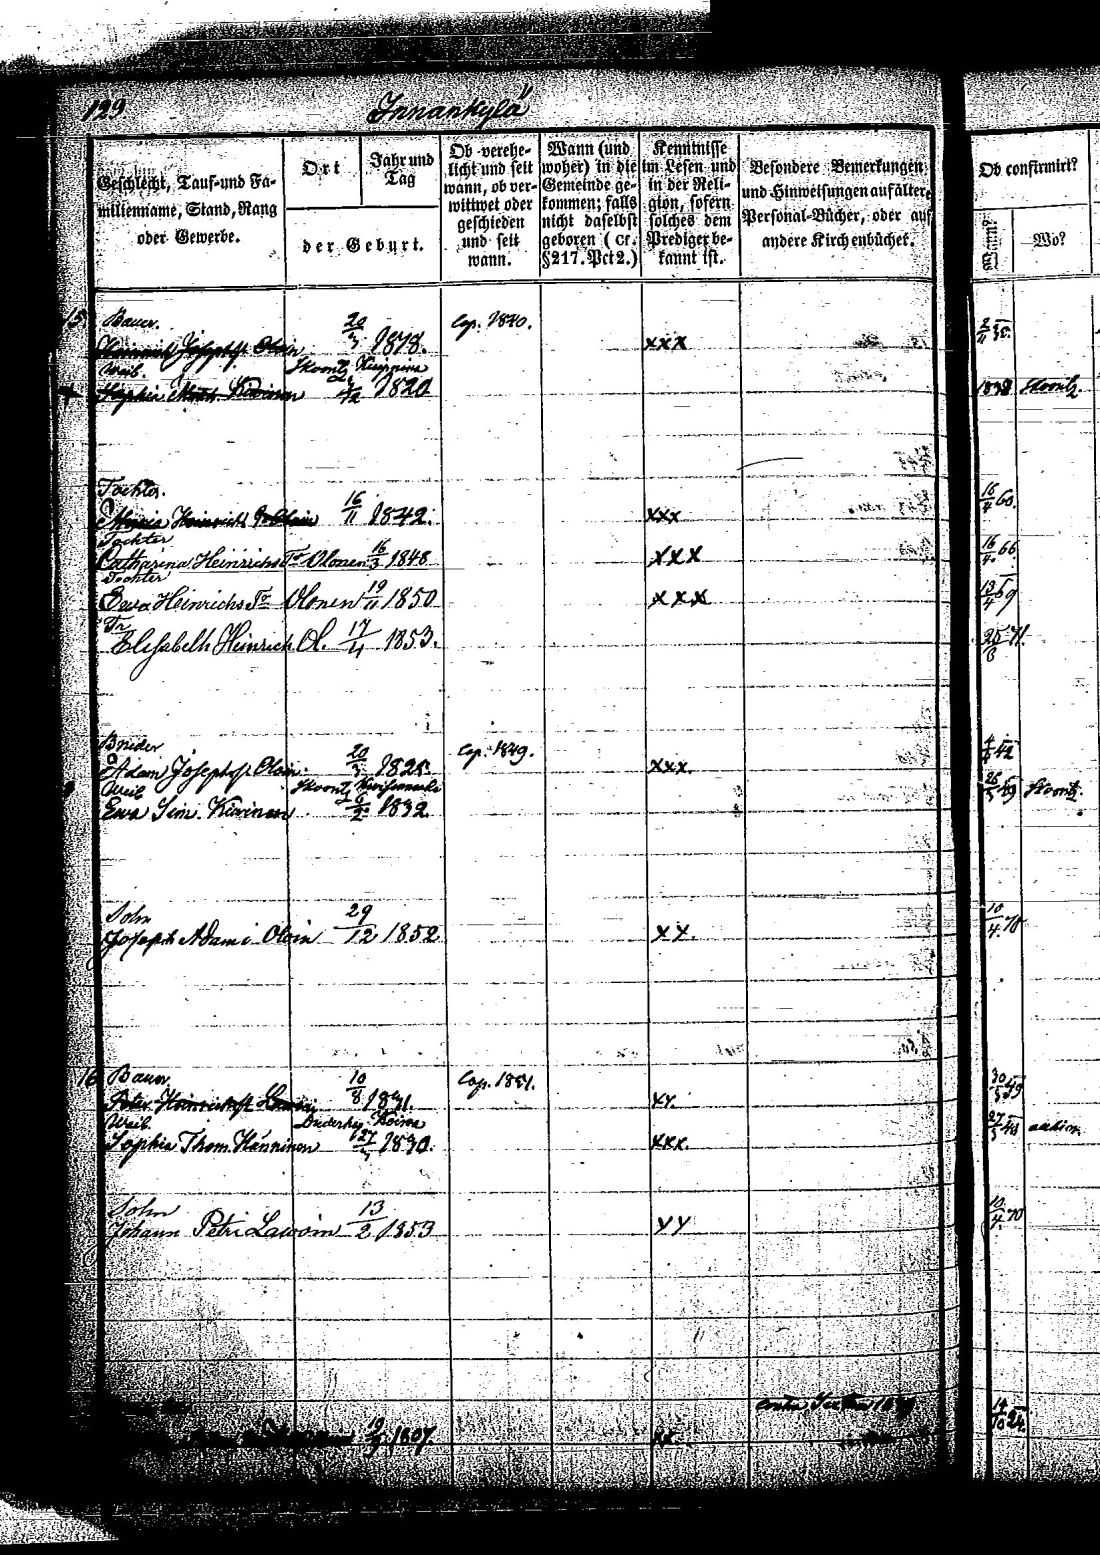 129 Innankylä
Geschlecht, Tauf-und Fa-
milienname, Stand, Rang
oder Gewerbe.
Ort
Jahr und
Tag
der Geburt.
Ob verehe-
licht und seit
wann, ob ver-
wittwet oder
geschieden
und seit
wann.
Wann (und
woher) in die
Gemeinde ge-
kommen; falls
nicht daselbst
geboren (cf.
§217. Pct 2.)
Kenntnisse
im Lesen und
in der Reli-
gion, sofern
solches dem
Prediger be-
kannt ist.
Besondere Bemerkungen
und Hinweisungen auf ältere
Personal-Bücher, oder auf
andere Kirchenbücher.
Ob confirmirt?
Wann?
Wo?
15 Bauer. Cop. 1840.
Heinrich Josephs. Oloin 20/3 1818. xxx
Weib. Skvoritz
Sophia Kivinen 1820 1838 Skvoritz.
Tochter.
Maria Heinrichs 16/11 1842. xxx 16/4 60.
Tochter
Catharina Heinrichs Tr Olonen 16/3 1848 xxx 16/4. 66.
Tochter
Ewa Heinrichs Tr Olonen 19/11 1850 xxx 13/4 69
Tr.
Elisabeth Heinrich Ol. 17/4 1853. 71.
Bruder Cop. 1849.
Adam Josephs. Oloin 20/3 1825. xxx. 42
Weib Skvoritz
Ewa Sim. Kivinen 1832. 49 Skvoritz.
Sohn
Joseph Adami Oloin 29/12 1852 xx. 10/4. 70
16 Bauer Cop. 1851.
Peter Heinrichs. 10/8 1831. xx. 30/5 49
Weib. Duderhof
Sophia Thom. Hänninen 27/3 1830. xxx. 27/5 48
Sohn
Johann Petri Lawoin 13/2 1853 xx 10/4. 70
1807. xx. 14/10 24.